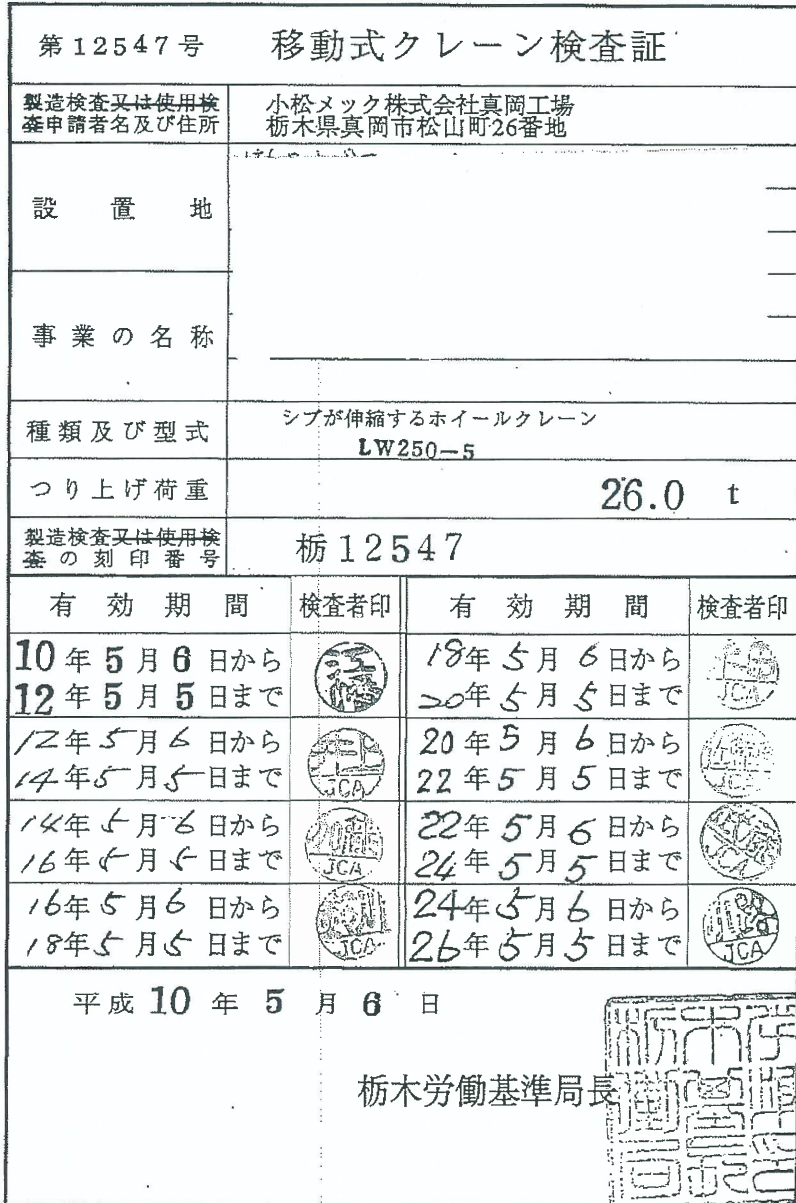 第12547号 移動式クレーン検査証
製造検査又は使用検
査申請者名及び住所
小松メック株式会社真岡工場
栃木県真岡市松山町26番地
設置地
事業の名称
種類及び型式
シブが伸縮するホイールクレーン
LW250-5
つり上げ荷重 26.0 t
製造検査又は使用検
査の刻印番号
栃12547
有効期間 検査者印 有効期間 検査者印
10年5月6日から
12年5月5日まで
12年5月6日から
14年5月5日まで
JCA
14年5月6日から
16年5月5日まで
JCA
16年5月6日から
18年5月5日まで
JCA
18年5月6日から
20年5月5日まで
JCA
20年5月6日から
22年5月5日まで
JCA
22年5月6日から
24年5月5日まで
JCA
24年5月6日から
26年5月5日まで
JCA
平成10年5月6日
栃木労働基準局長